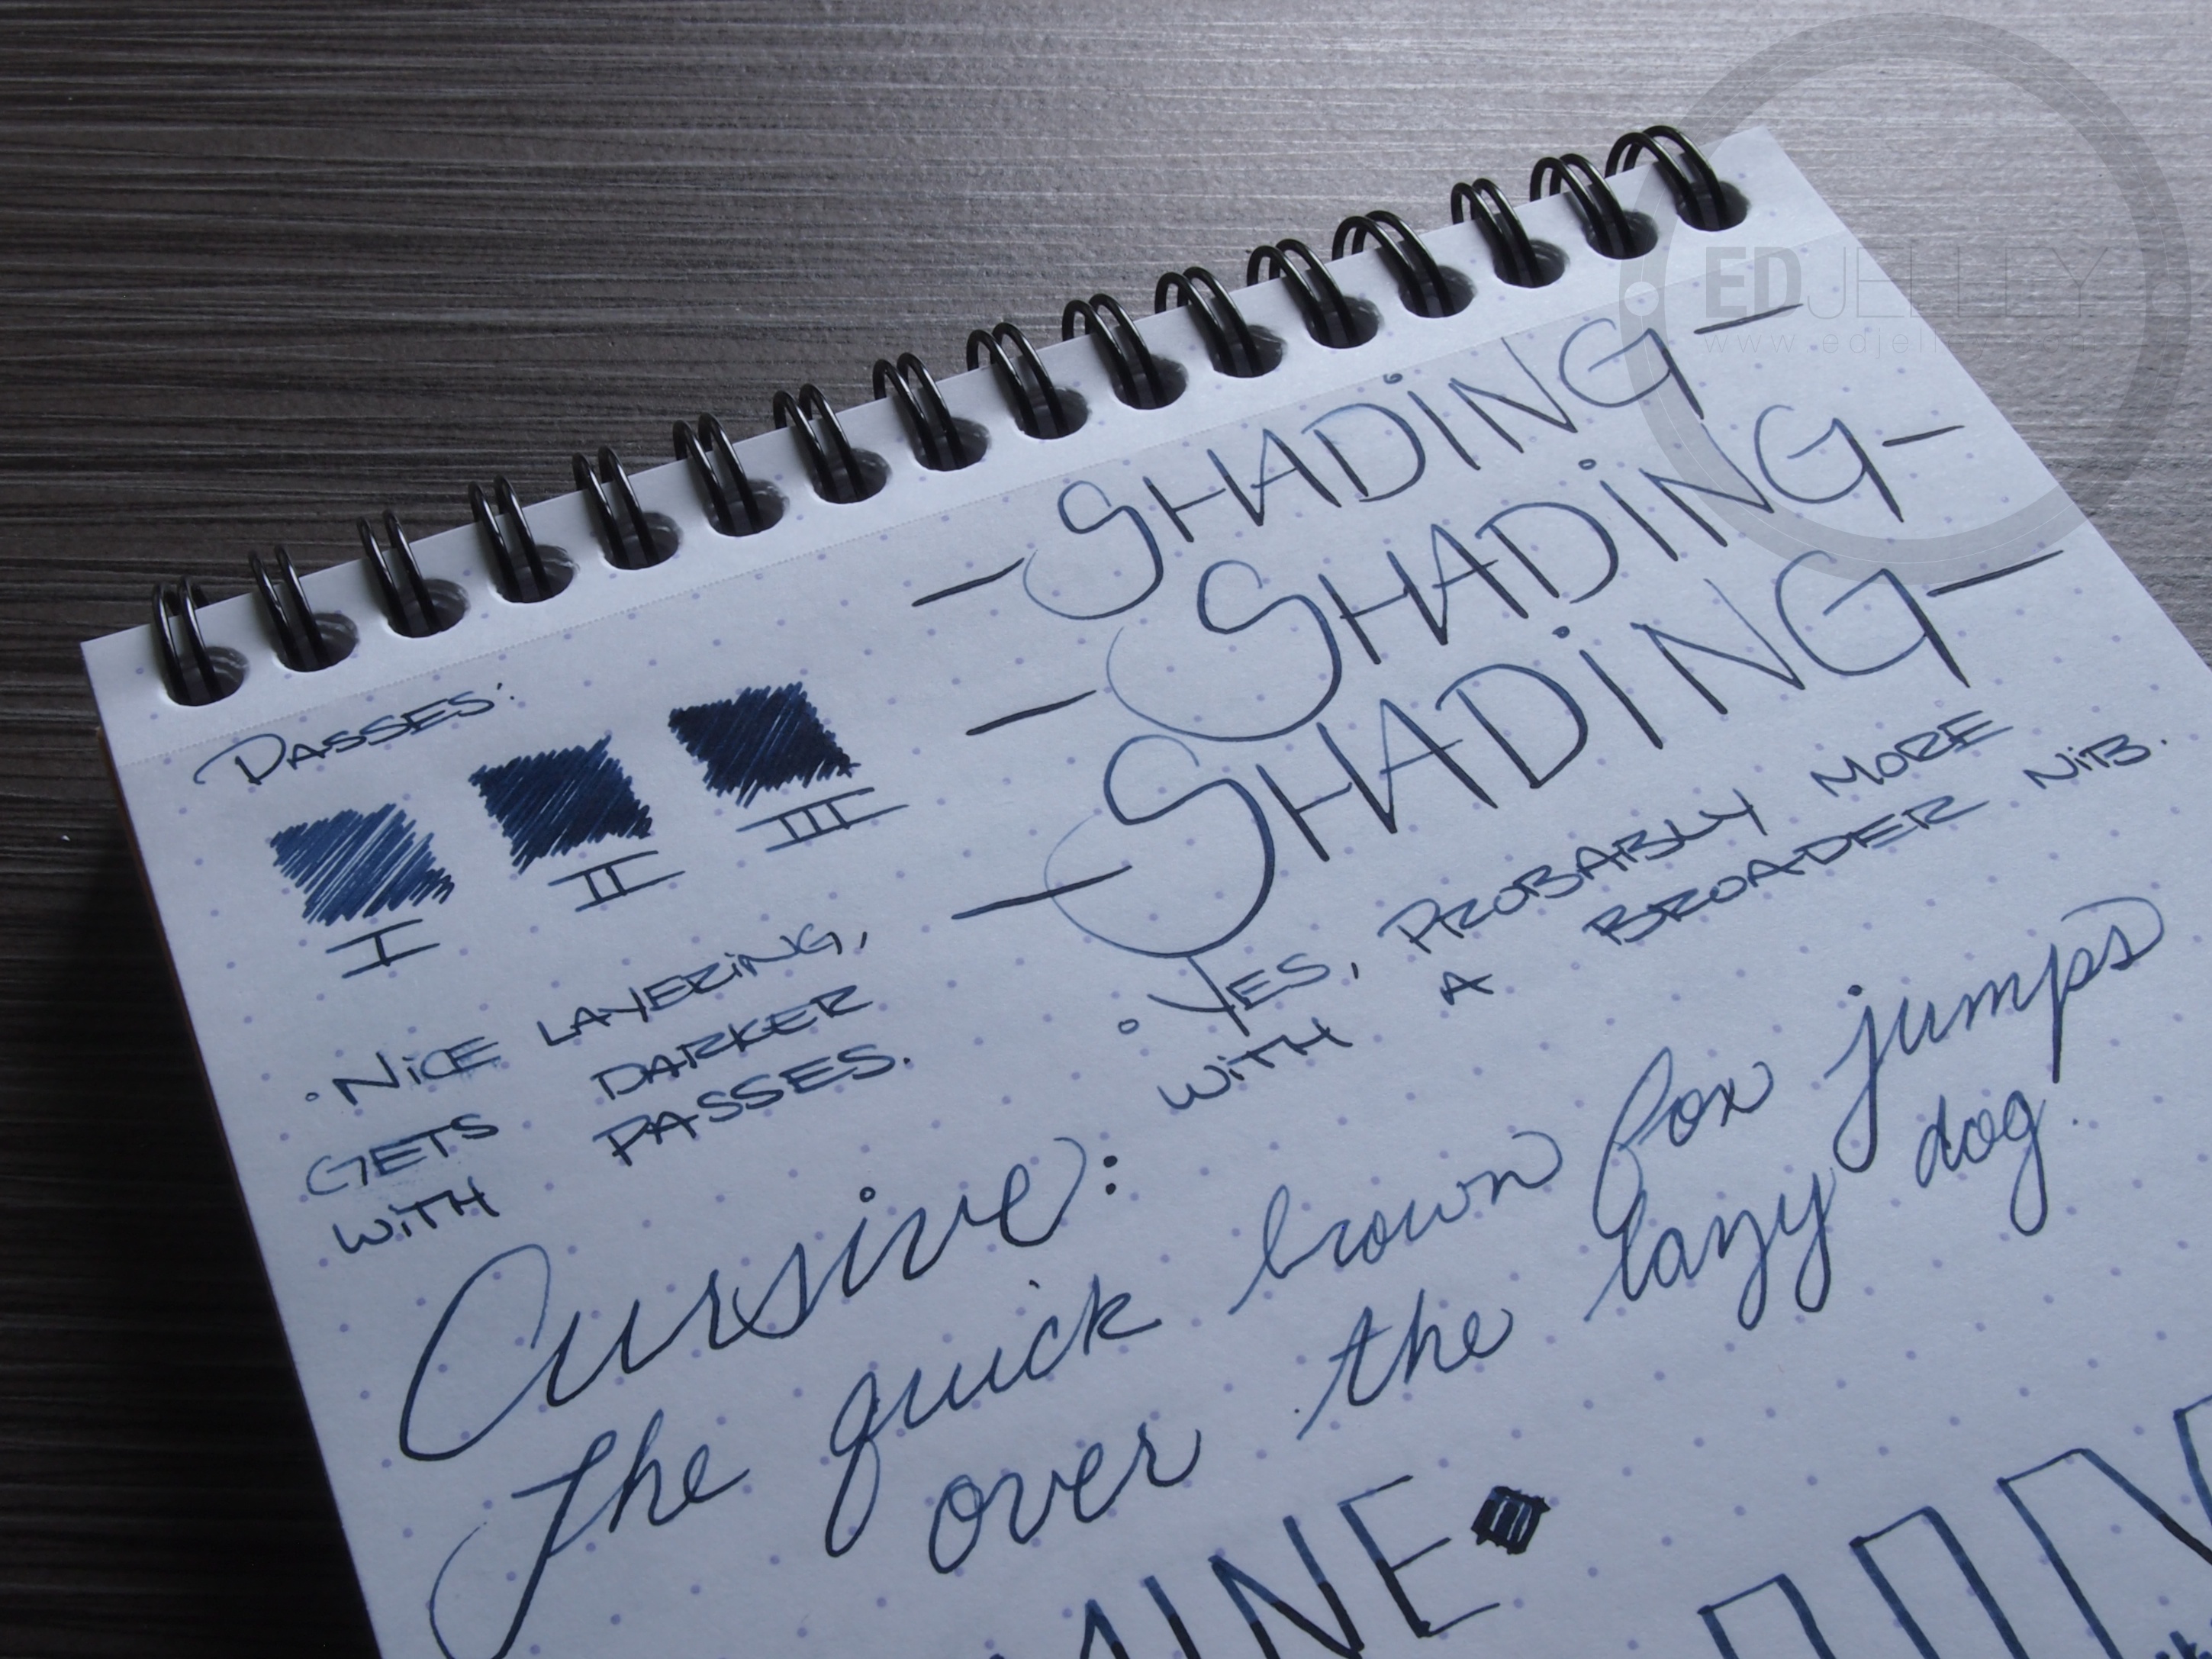 PASSES:
I
II
III
• NICE LAYERING,
GETS DARKER
WITH PASSES.
—SHADING—
—SHADING—
—SHADING—
• YES, PROBABLY MORE
WITH A BROADER NIB.
Cursive:
The quick brown fox jumps
over the lazy dog.
MINE
EDJELLEY
www.edjelley.com